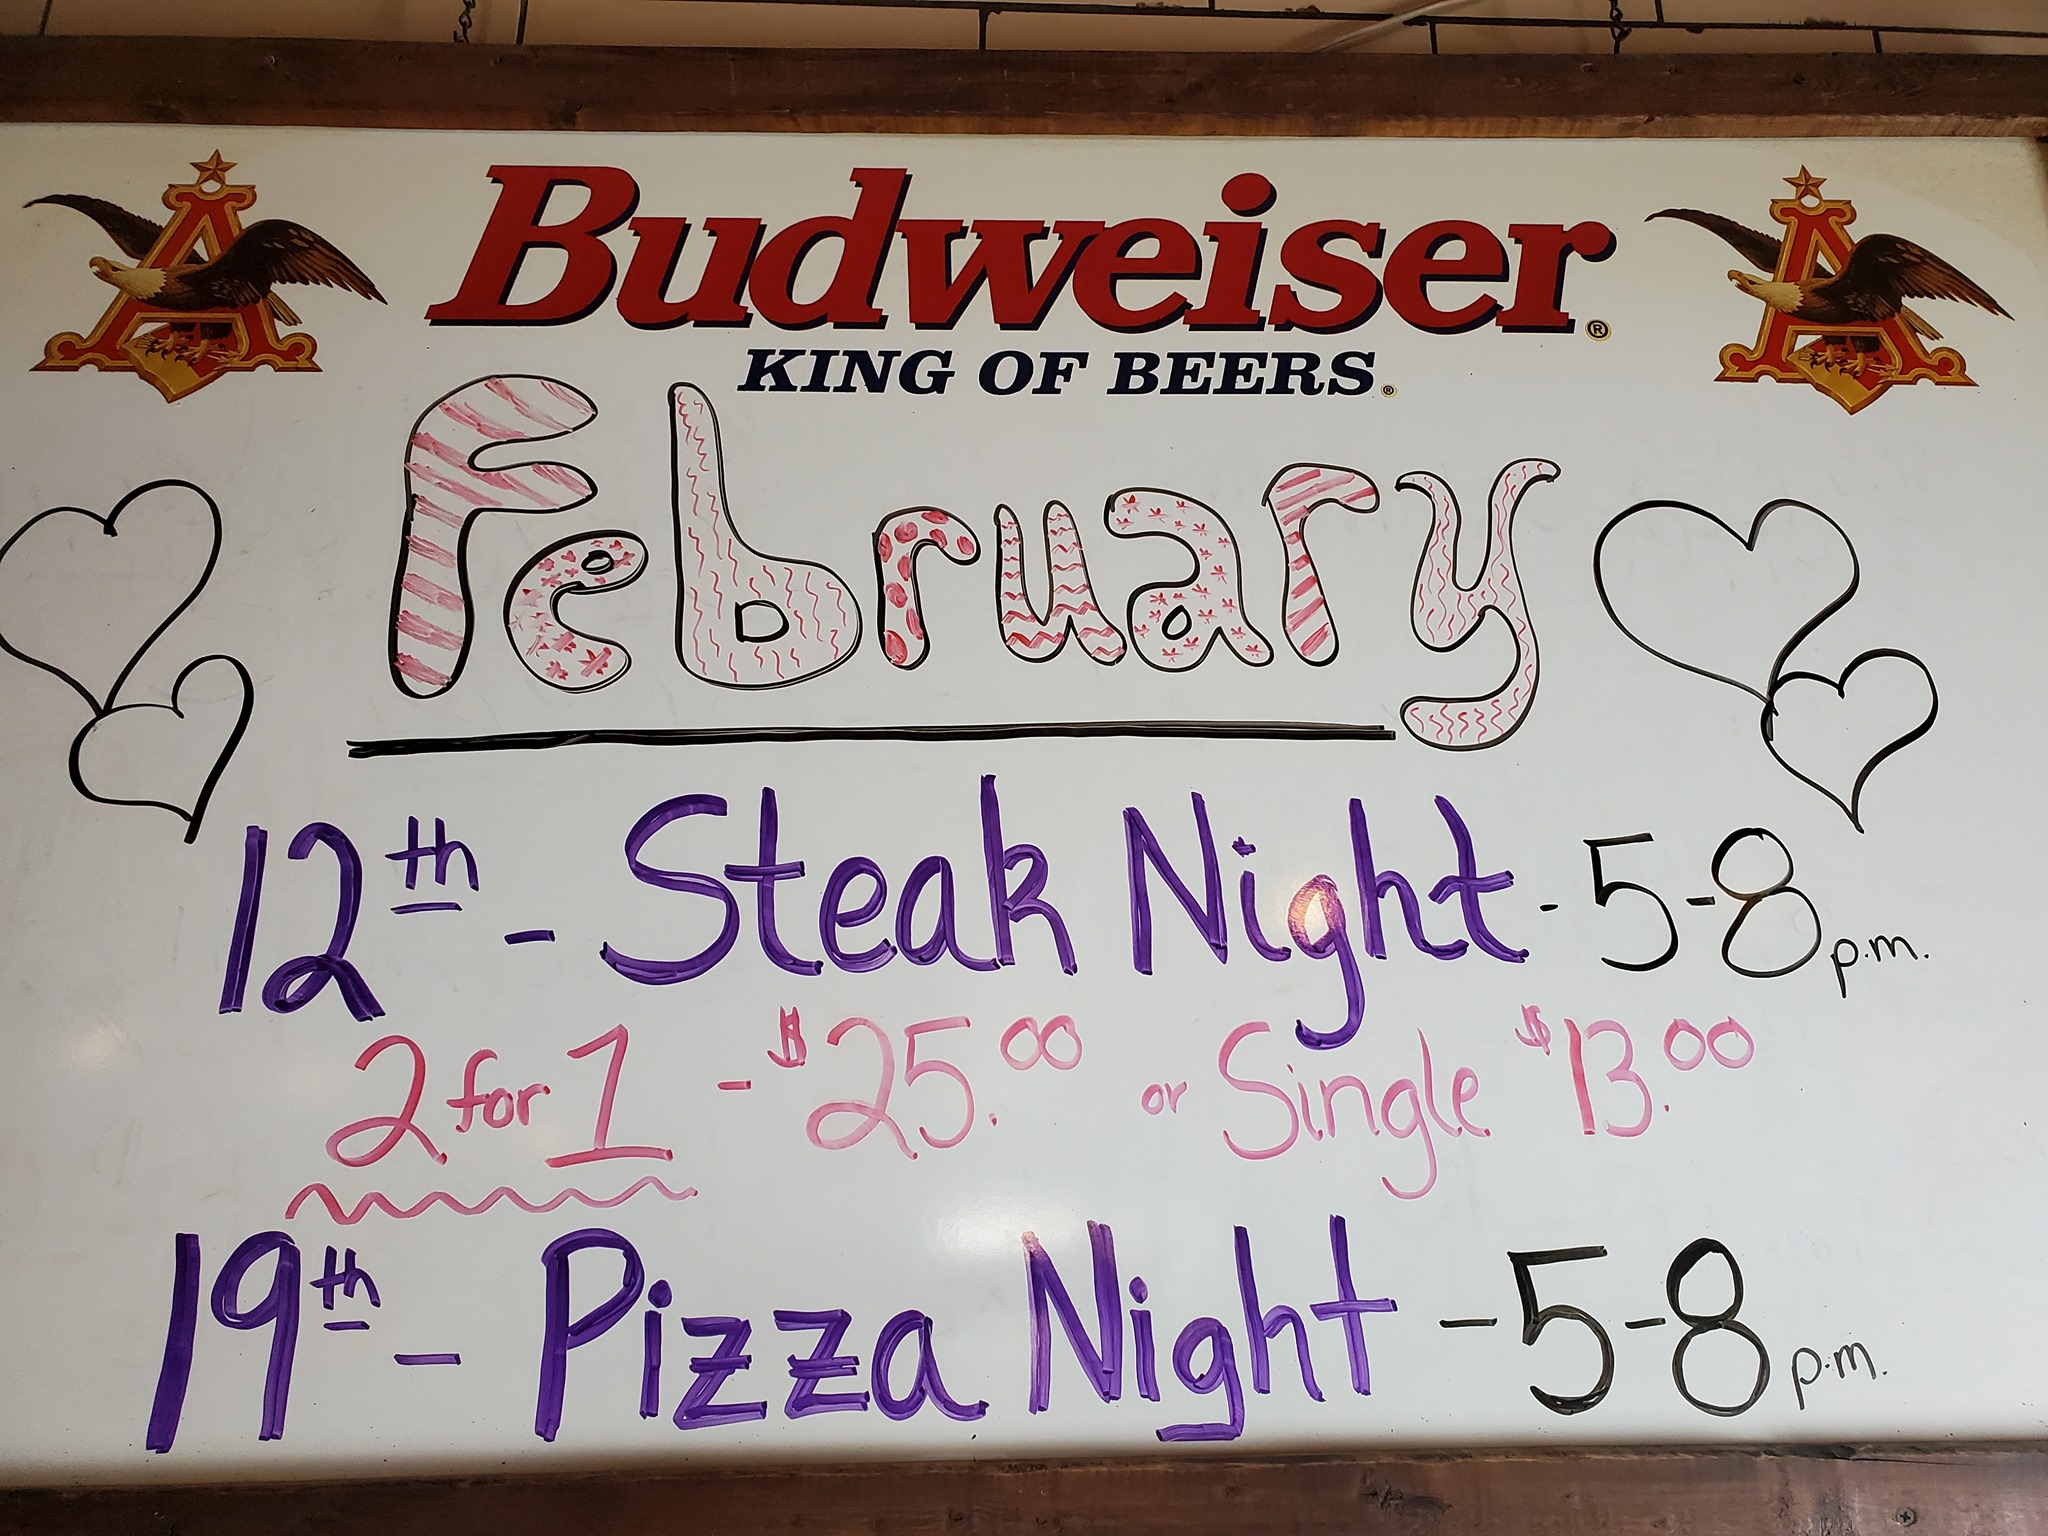 Budweiser®
KING OF BEERS®
February
12th - Steak Night - 5-8 p.m.
2 for 1 - $25.00 or Single $13.00
19th - Pizza Night - 5-8 p.m.